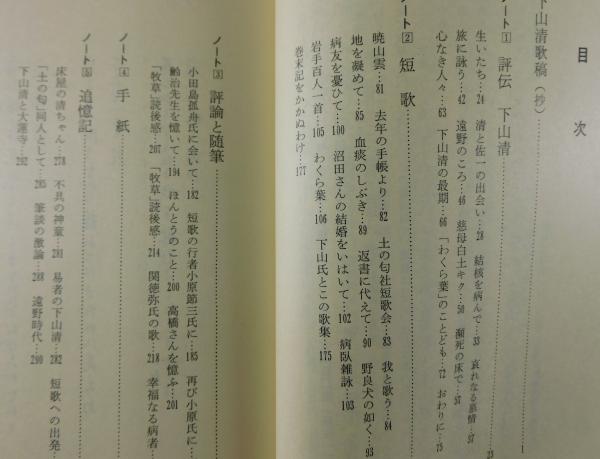 目次
下山清歌稿(抄)
ノート1 評伝 下山清
生いたち…24 清と佐一の出会い…28 結核を病んで…33 哀れなる慕情…37
旅に詠う…42 遠野のころ…46 慈母白土キク…50 瀕死の床で…57
心なき人々…63 下山清の最期…66 「わくら葉」のことども…72 おわりに…75
ノート2 短歌
暁山雲…81 去年の手帳より…82 土の匂社短歌会…83 我と歌う…84
地を凝めて…85 血痰のしぶき…89 返書に代えて…90 野良犬の如く…93
病友を憂ひて…100 沼田さんの結婚をいはいて…102 病臥雑詠…103
岩手百人一首…105 わくら葉…106 下山氏とこの歌集…175
巻末記をかかぬわけ…177
ノート3 評論と随筆
小田島孤舟氏に会いて…182 短歌の行者小原節三氏に…185 再び小原氏に…
齢治先生を憶いて…194 ほんとうのこと…200 高橋さんを憶ふ…201
「牧草」読後感…207 「牧草」読後感…214 関徳弥氏の歌…218 幸福なる病者…
ノート4 手紙
ノート5 追憶記
床屋の清ちゃん…278 不具の神童…281 易者の下山清…282 短歌への出発…
「土の匂」同人として…285 筆談の激論…288 遠野時代…290
下山清と大蓮寺…292